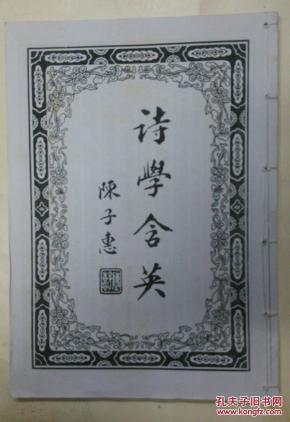 詩學含英
陳子惠
孔夫子旧书网